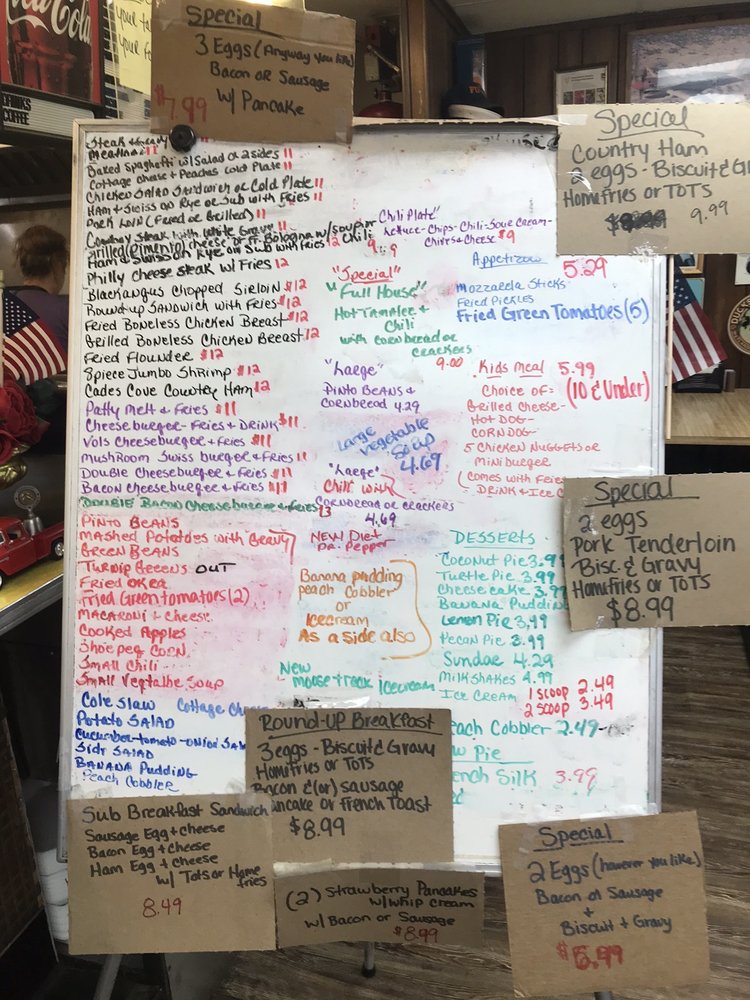 Coca-Cola
DRINKS
COFFEE
Special
3 Eggs (Anyway You like)
Bacon or Sausage
W/ Pancake
$7.99
Special
Country Ham
eggs - Biscuit &
Homefries or TOTS
9.99
Steak +
Meatloaf 11
Baked Spaghetti w/Salad or 2 sides 11
Cottage cheese + Peaches Cold Plate 11
Chicken Salad Sandwich or Cold Plate 11
Ham + Swiss on Rye or Sub with Fries 11
Pork Loin (Fried or Grilled) 11
Country Steak with White Gravy 11
grilled (Pimento) cheese or Fr. Bologna w/soup or Chili 9
Ham & Swiss on Rye or Sub with Fries 12
Philly Cheese Steak w/ Fries 12
Black Angus Chopped Sirloin $12
Round-up Sandwich with Fries $12
Fried Boneless Chicken Breast $12
Grilled Boneless Chicken Breast 12
Fried Flounder $12
Spiece Jumbo Shrimp $12
Cades Cove Country Ham $12
Patty Melt & Fries $11
Cheeseburger - Fries & Drink $11
Vols Cheeseburger + Fries $11
Mushroom Swiss burger + Fries 11
Double Cheeseburger + Fries $11
Bacon Cheeseburger + Fries $11
Double Bacon Cheeseburger + Fries 13
Pinto Beans
Mashed Potatoes with Gravy
Green Beans
Turnip Greens OUT
Fried Okra
Fried Green tomatoes (2)
Macaroni + Cheese
Cooked Apples
Shoepeg Corn
Small Chili
Small Vegtalbe Soup
Cole Slaw Cottage
Potato Salad
Cucumber-tomato-onion
Side Salad
Banana Pudding
Peach Cobbler
Chili Plate"
Lettuce-Chips-Chili-Sour Cream-
Chives & Cheese $9
9
"Special"
"Full House"
Hot Tamale &
Chili
with cornbread or
crackers
9.00
"Large"
Pinto Beans &
Cornbread 4.29
Large
Vegetable
Soup
4.69
"Large"
Chili with
Cornbread or crackers
4.69
New Diet
Dr. Pepper
Banana pudding
peach Cobbler
or
Icecream
As a side also
New
moose track Icecream
5.29
Mozzarella Sticks
Fried Pickles
Fried Green Tomatoes (5)
Kids Meal 5.99
Choice of = (10 & Under)
Grilled Cheese -
Hot Dog -
Corn Dog -
5 Chicken Nuggets or
Mini burger
(Comes with Fries
Drink & Ice
Special
2 eggs
Pork Tenderloin
Bisc & Gravy
Homefries or TOTS
$8.99
Desserts
Coconut Pie 3.99
Turtle Pie 3.99
Cheesecake 3.99
Banana Pudding
Lemon Pie 3.99
Pecan Pie 3.99
Sundae 4.29
Milkshakes 4.99
Ice Cream 1 scoop 2.49
2 scoop 3.49
each Cobbler 2.49
Pie
ench Silk 3.99
Round-up Breakfast
3 eggs - Biscuit & Gravy
Homefries or TOTS
Bacon &(or) sausage
ancake or French Toast
$8.99
Sub Breakfast Sandwich
Sausage Egg + cheese
Bacon Egg + cheese
Ham Egg + cheese
w/ Tots or Home
fries
8.49
(2) Strawberry Pancakes
w/ whip cream
w/ Bacon or Sausage
$8.99
Special
2 Eggs (however you like)
Bacon or Sausage
+
Biscuit + Gravy
$5.99